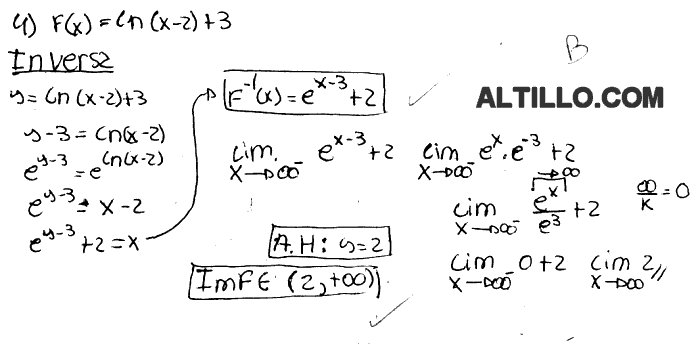 4) F(x) = Ln (x-2) + 3
Inversa
y = Ln (x-2) + 3
y - 3 = Ln (x-2)
e^{y-3} = e^{Ln(x-2)}
e^{y-3} = x - 2
e^{y-3} + 2 = x
F^{-1}(x) = e^{x-3} + 2 ✓
B
ALTILLO.COM
Lim. x→∞⁻ e^{x-3} + 2
Lim x→∞⁻ e^x . e^{-3} + 2
→∞
Lim x→∞⁻ e^x / e^3 + 2
∞/K = 0
Lim x→∞⁻ 0 + 2 Lim x→∞ 2 //
A.H: y = 2
Im F ∈ (2, +∞) ✓